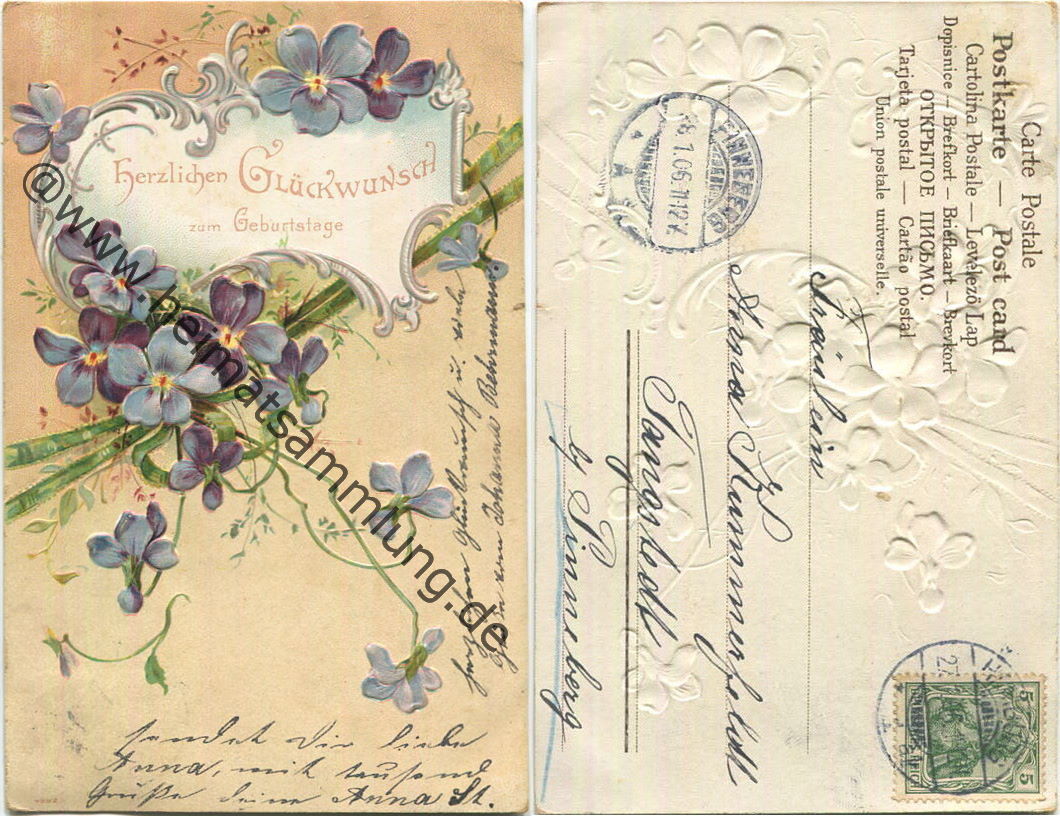 Herzlichen GLÜCKWUNSCH
zum Geburtstage
@www.heimatsammlung.de
sendet dir liebe
Anna, mit tausend
Grüße deine Anna St.
herzlichen Glückwunsch u. viele
Johanna Behrmann.
Carte Postale
Postkarte — Post card
Cartolina Postale — Levelező Lap
Dopisnice — Brefkort — Briefkaart — Brevkort
ОТКРЫТОЕ ПИСЬМО.
Tarjeta postal — Cartão postal
Union postale universelle.
PINNEBERG
1.06.11-12V.
Fräulein
Anna Kummerfeldt
Tangstedt
b/ Pinneberg
5
5
DEUTSCHES REICH